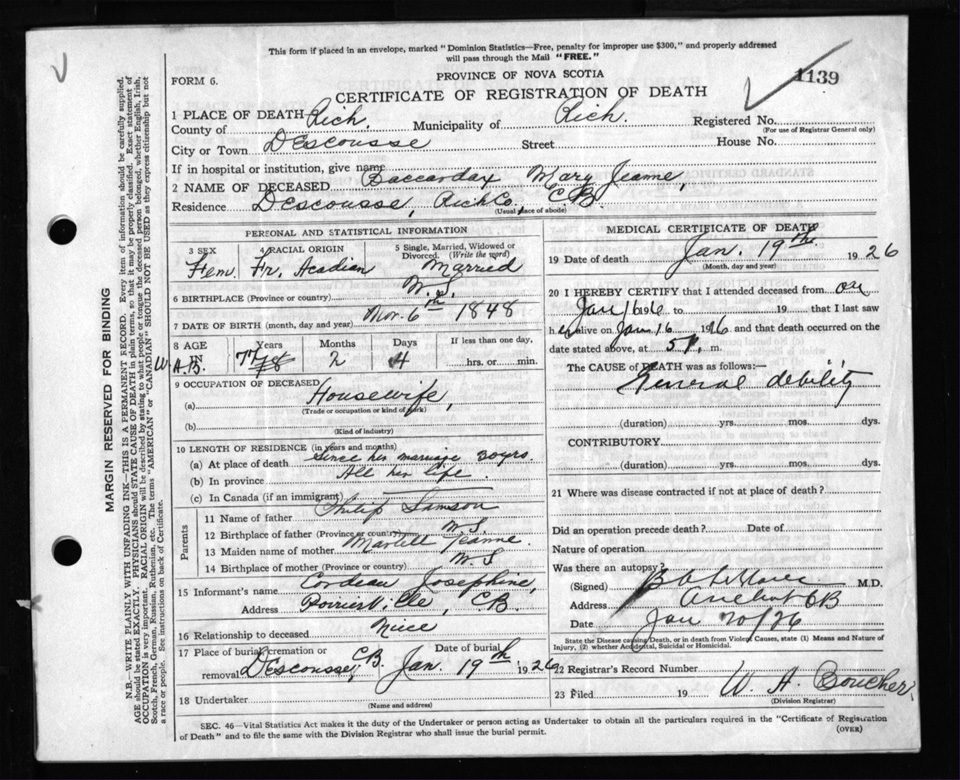 This form if placed in an envelope, marked "Dominion Statistics—Free, penalty for improper use $300," and properly addressed
will pass through the Mail "FREE."
FORM 6.
PROVINCE OF NOVA SCOTIA
1139
CERTIFICATE OF REGISTRATION OF DEATH
1 PLACE OF DEATH
County of Rich. Municipality of Rich. Registered No.
(For use of Registrar General only)
City or Town Descousse Street House No.
If in hospital or institution, give name
2 NAME OF DECEASED Baccardax Mary Jeanne,
Residence Descousse, Rich Co. C.B.
(Usual place of abode)
PERSONAL AND STATISTICAL INFORMATION
3 SEX Fem. 4 RACIAL ORIGIN Fr. Acadian 5 Single, Married, Widowed or Divorced. (Write the word) Married
6 BIRTHPLACE (Province or country) N.S.
7 DATE OF BIRTH (month, day and year) Nov. 6th 1848
8 AGE IN Years 77 Months 2 Days 4 If less than one day, hrs. or min.
W.A.B.
9 OCCUPATION OF DECEASED
(a) Housewife,
(Trade or occupation or kind of work)
(b)
(Kind of industry)
10 LENGTH OF RESIDENCE (in years and months)
(a) At place of death since her marriage 30 yrs.
(b) In province All her life.
(c) In Canada (if an immigrant)
Parents
11 Name of father Philip Samson
12 Birthplace of father (Province or country) N.S.
13 Maiden name of mother Martell Jeanne,
14 Birthplace of mother (Province or country) N.S
15 Informant's name Cordeau Josephine,
Address Poirierville, C.B.
16 Relationship to deceased Niece
17 Place of burial, cremation or removal Descousse, C.B. Date of burial Jan. 19th 1926
18 Undertaker
(Name and address)
MEDICAL CERTIFICATE OF DEATH
19 Date of death Jan. 19th 1926
(Month, day and year)
20 I HEREBY CERTIFY that I attended deceased from on
Jan 16 to 19 that I last saw
her alive on Jan 16 1926 and that death occurred on the
date stated above, at 5 P. m.
The CAUSE of DEATH was as follows:—
General debility
(duration) yrs. mos. dys.
CONTRIBUTORY
(duration) yrs. mos. dys.
21 Where was disease contracted if not at place of death?
Did an operation precede death? Date of
Nature of operation
Was there an autopsy?
(Signed) M.D.
Address Arichat CB
Date Jan 20/26
State the Disease causing Death, or in death from Violent Causes, state (1) Means and Nature of
Injury, (2) whether Accidental, Suicidal or Homicidal.
22 Registrar's Record Number
23 Filed 19 W. A. Boucher,
(Division Registrar)
SEC. 46—Vital Statistics Act makes it the duty of the Undertaker or person acting as Undertaker to obtain all the particulars required in the "Certificate of Registration
of Death" and to file the same with the Division Registrar who shall issue the burial permit.
(OVER)
MARGIN RESERVED FOR BINDING
N.B.—WRITE PLAINLY WITH UNFADING INK—THIS IS A PERMANENT RECORD. Every item of information should be carefully supplied.
AGE should be stated EXACTLY. PHYSICIANS should STATE CAUSE OF DEATH in plain terms, so that it may be properly classified. Exact statement of
OCCUPATION is very important. RACIAL ORIGIN will be described by stating to what people or tongue the deceased person belonged, whether English, Irish,
Scotch, French, German, Russian, Ruthenian, etc. The terms "AMERICAN" or "CANADIAN" SHOULD NOT BE USED as they express citizenship but not
a race or people. See instructions on back of Certificate.